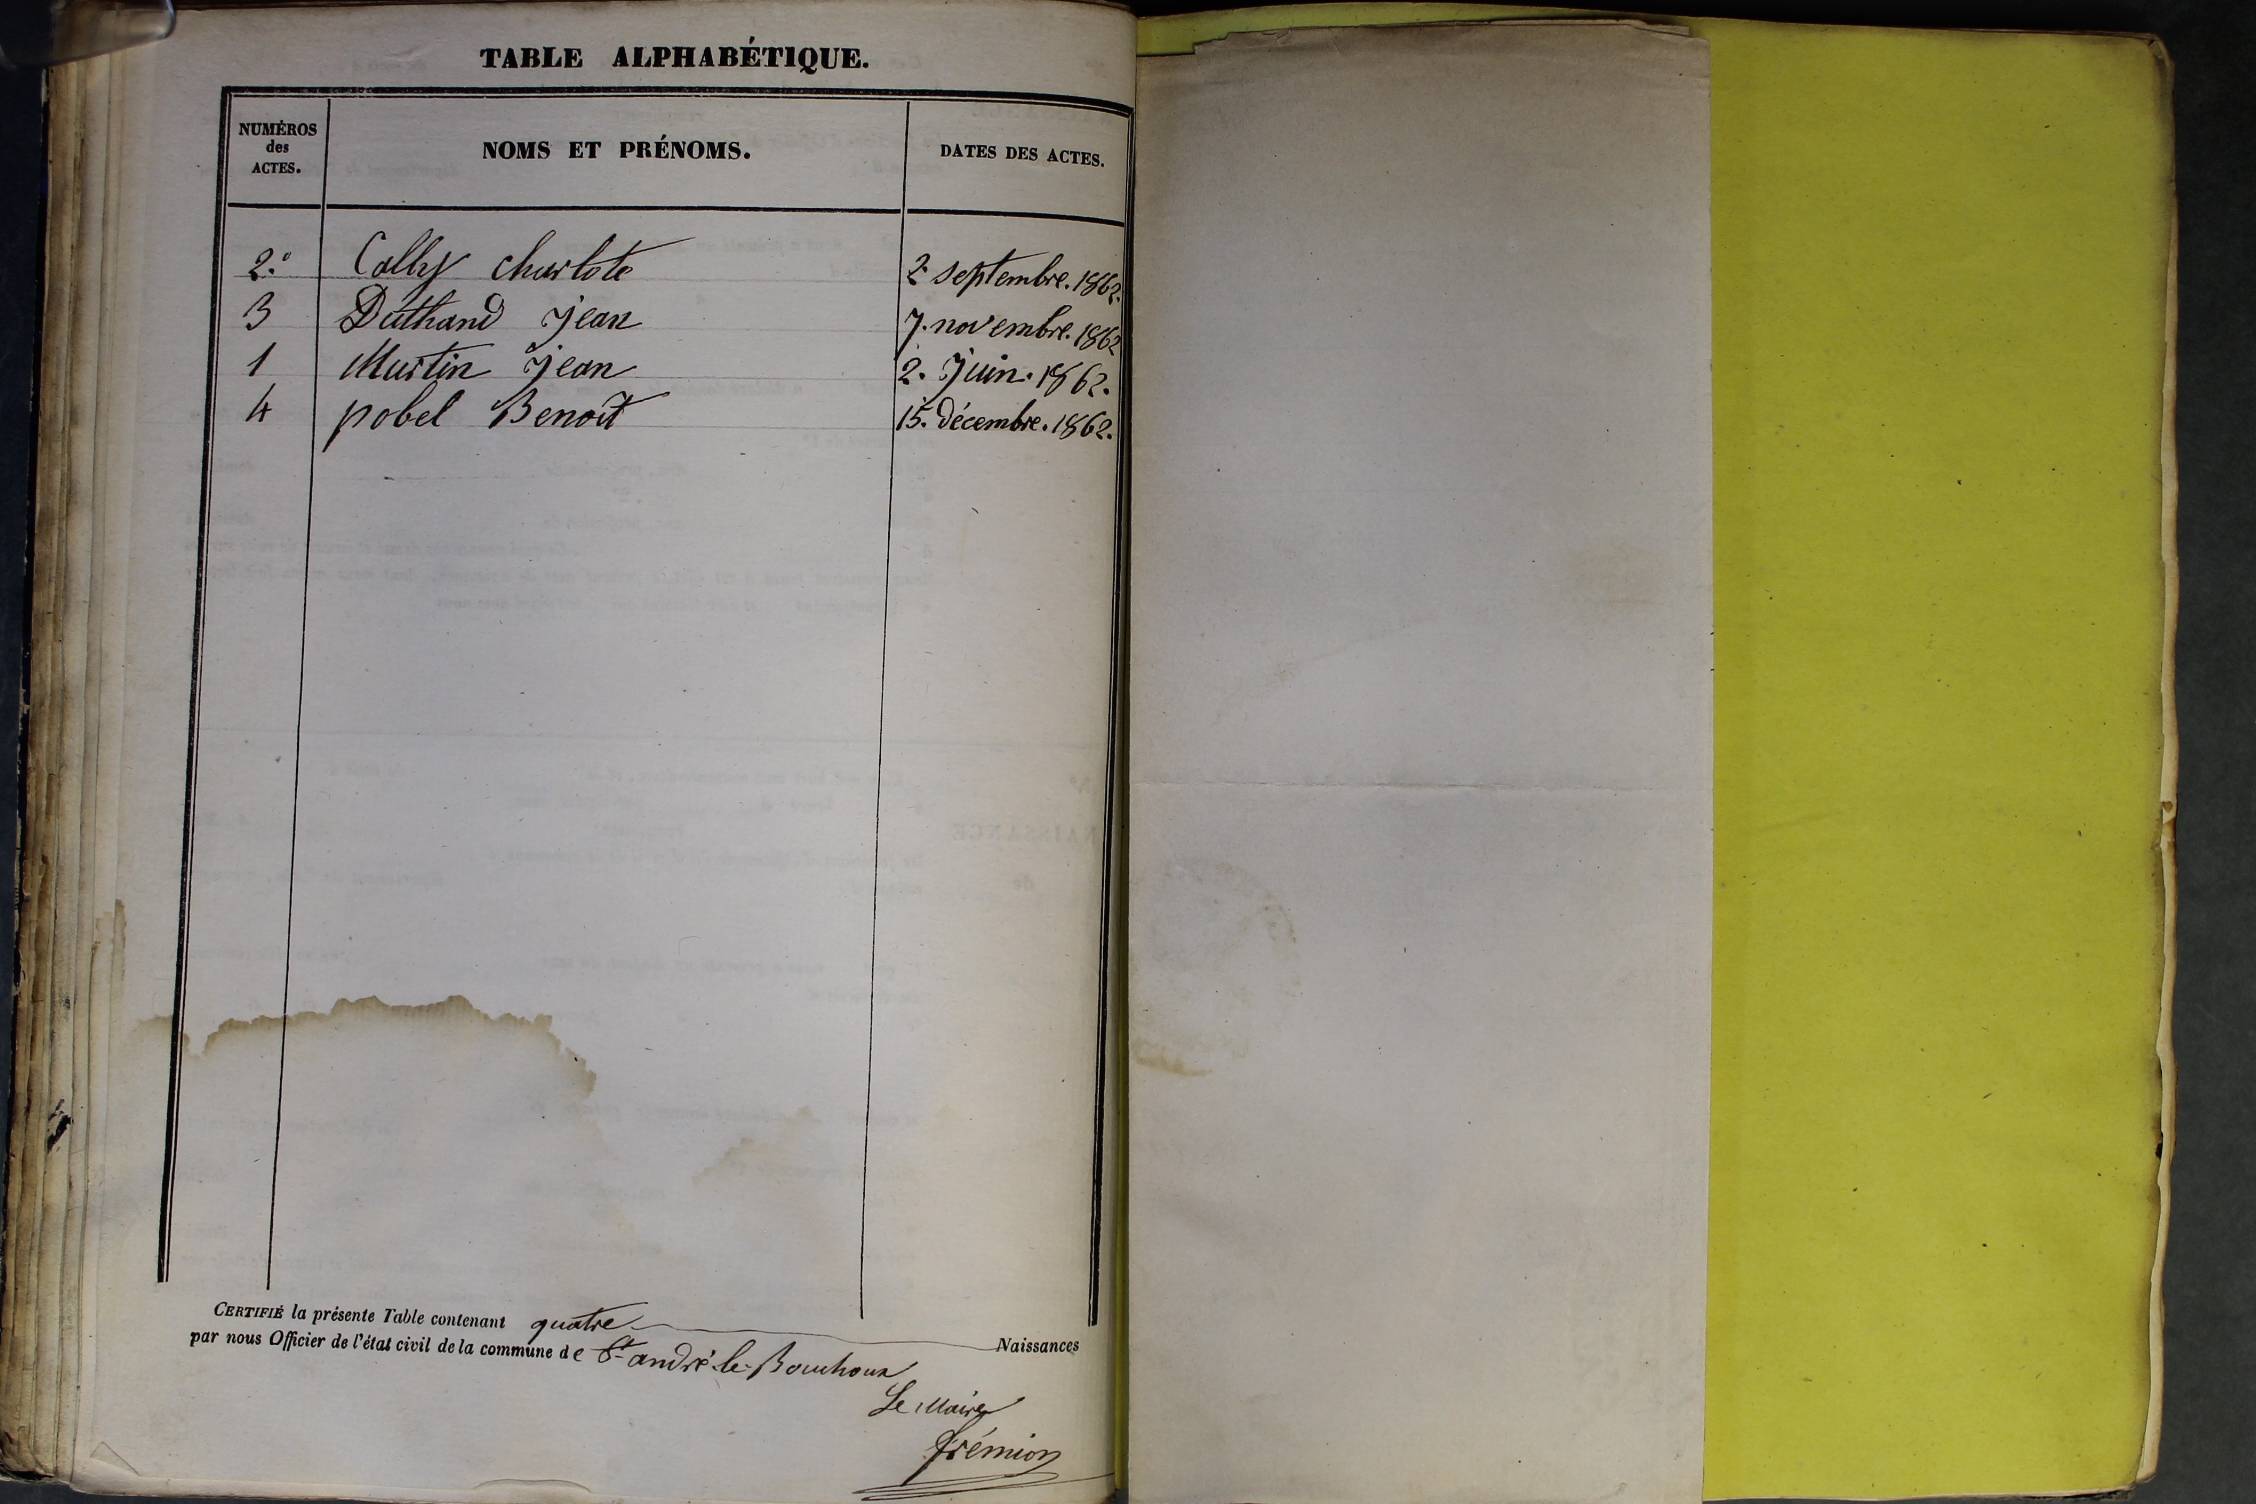 TABLE ALPHABÉTIQUE.
NUMÉROS des ACTES.
NOMS ET PRÉNOMS.
DATES DES ACTES.
2.° Cally charlote 2 septembre. 1862.
3 Duthand jean 7. novembre. 1862
1 Martin jean 2. Juin. 1862.
4 pobel Benoit 15. décembre. 1862.
CERTIFIÉ la présente Table contenant quatre Naissances
par nous Officier de l'état civil de la commune de St andré-le-Bouchoux
Le Maire
frémion